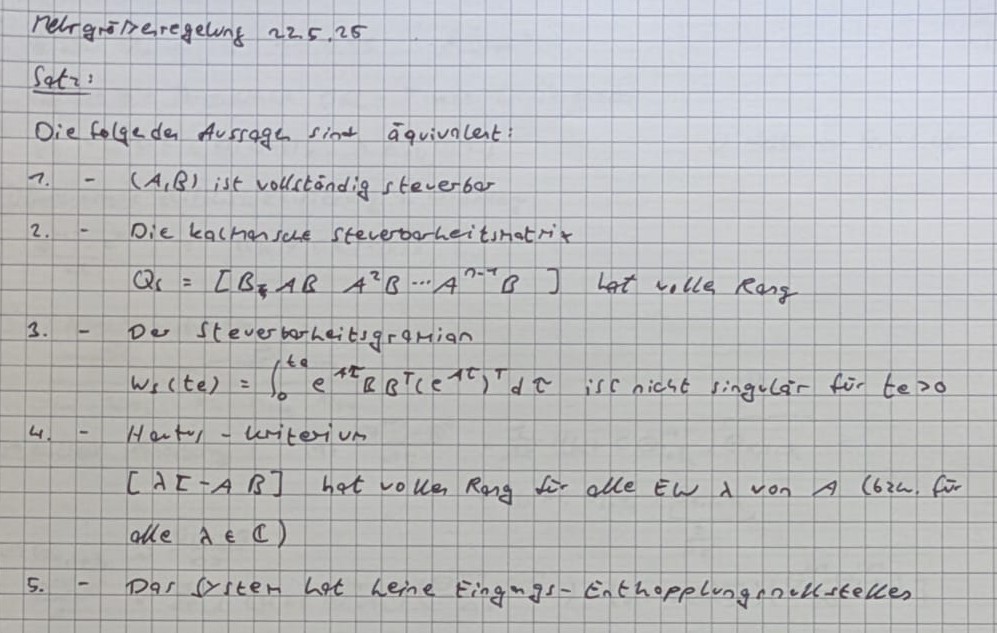 Mehrgrößenregelung 22.5.25
Satz:
Die folgenden Aussagen sind äquivalent:
1. - (A,B) ist vollständig steuerbar
2. - Die kalmansche Steuerbarkeitsmatrix
Qs = [B, AB A²B ... Aⁿ⁻¹B ] hat vollen Rang
3. - Der Steuerbarkeitsgramian
Ws(te) = ∫₀^te e^Aτ B Bᵀ (e^Aτ)ᵀ dτ ist nicht singulär für te>0
4. - Hautus-Kriterium
[λI-A B] hat vollen Rang für alle EW λ von A (bzw. für
alle λ ∈ ℂ)
5. - Das System hat keine Eingangs-Entkopplungsnullstellen